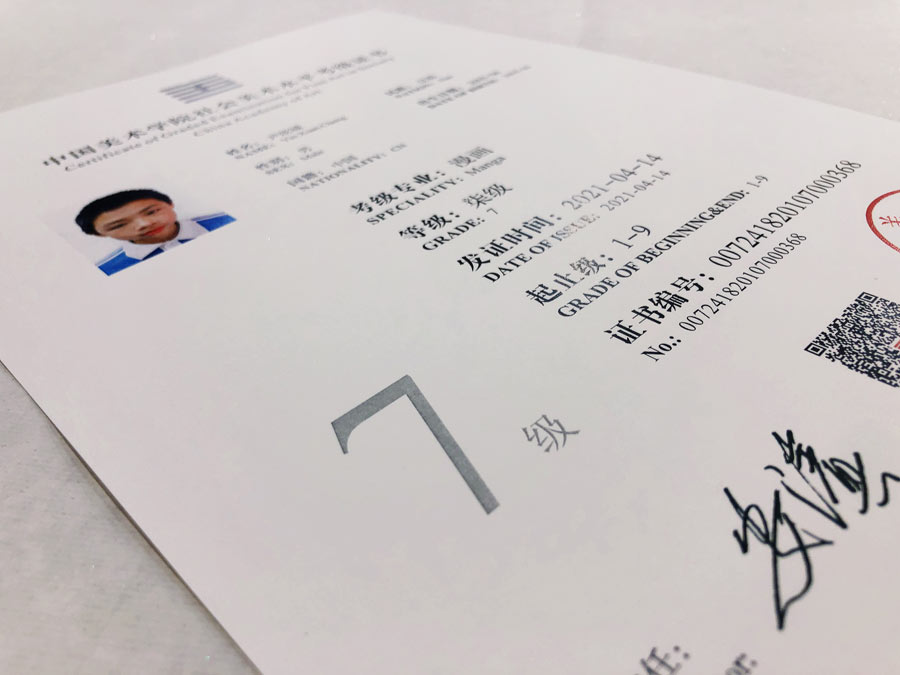 中国美术学院社会美术水平考级证书
Certificate of Graded Examination for Fine Art Specialty
China Academy of Art
姓名：
NAME:
性别：男
SEX: Male
国籍：中国
NATIONALITY: CN
考级专业：漫画
SPECIALITY: Manga
等级：柒级
GRADE: 7
发证时间：2021-04-14
DATE OF ISSUE: 2021-04-14
起止级：1-9
GRADE OF BEGINNING&END: 1-9
证书编号：00724182010700036​8
No.: 007241820107000368
7 级
任：
or: